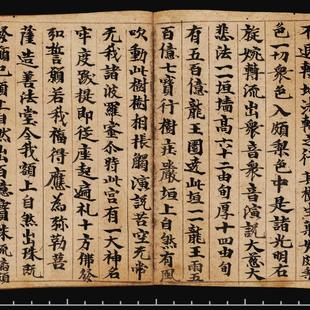 色一切衆色入頗梨色中是諸光明右
旋婉轉流出衆音衆音演說大慈大
悲法一一垣墻高六十二由旬厚十四由旬
有五百億龍王圍遶此垣一一龍王雨五
百億寶行樹莊嚴垣上自然有風
吹動此樹樹相振觸演說苦空无常
无我諸波羅蜜尒時此宮有一大神名
牢度跋提即從座起遍礼十方佛發
弘誓願若我福得應為弥勒菩
薩造善法堂令我額上自然出珠既
發願已額上自然出百億寶珠流璃頗